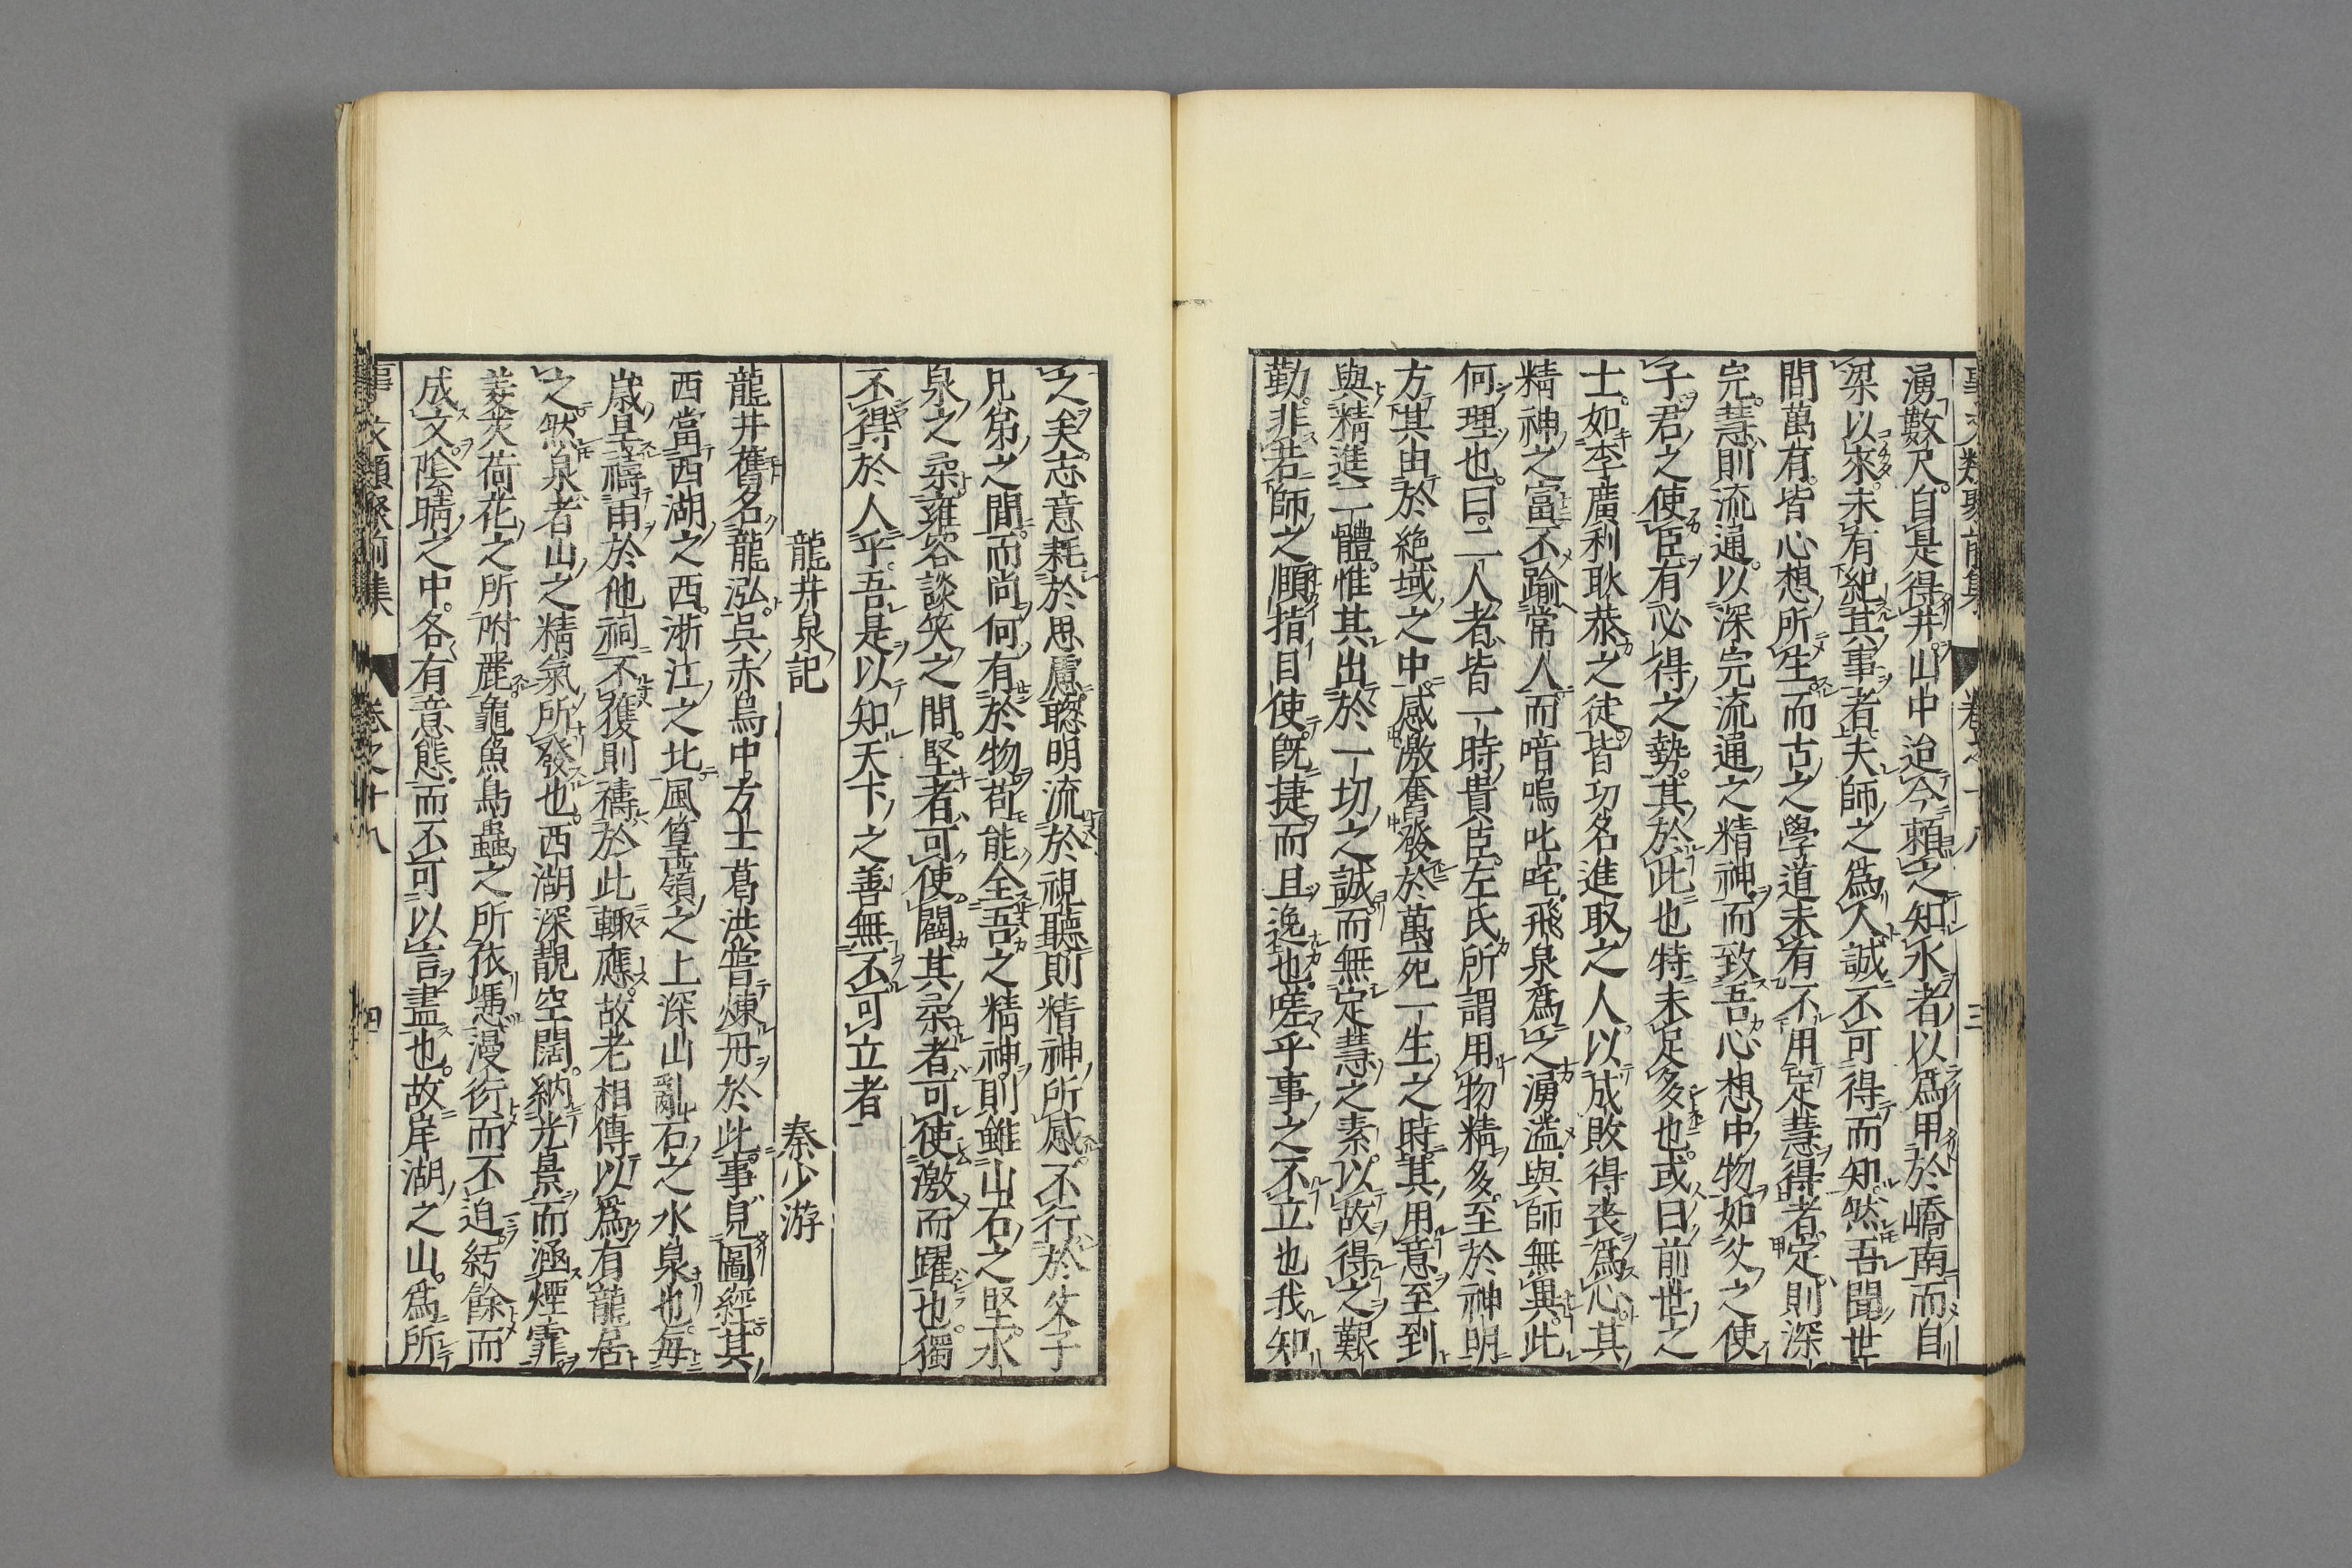 事文類聚前集 卷之十八 三
湧數尺自是得井山中迨今頼之知水者以爲甲於嶠南而自
梁以來未有紀其事者夫師之爲人誠不可得而知然吾聞世
間萬有皆心想所生而古之學道未有不用定慧得者定則深
完慧則流通以深完流通之精神而致吾心想中物如父之使
子君之使臣有必得之勢其於此也特未足多也或曰前世之
士如李廣利耿恭之徒皆功名進取之人以成敗得喪爲心其
精神之富不踰常人而喑嗚叱咤飛泉爲之湧溢與師無異此
何理也曰二人者皆一時貴臣左氏所謂用物精多至於神明
方其由於絶域之中感激奮發於萬死一生之時其用意至到
與精進一體惟其出於一切之誠而無定慧之素以故得之艱
勤非若師之頤指目使旣捷而且逸也嗟乎事之不立也我知
之矣志意耗於思慮聰明流於視聽則精神所感不行於父子
兄弟之間而尚何有於物苟能全吾之精神則雖山石之堅水
泉之柔雍容談笑之間堅者可使闢其柔者可使激而躍也獨
不得於人乎吾是以知天下之善無不可立者
龍井泉記 秦少游
龍井舊名龍泓呉赤烏中方士葛洪嘗煉丹於此事見圖經其
西當西湖之西浙江之北風篁嶺之上深山亂石之水泉也每
歳旱禱雨於他祠不獲則禱於此輙應故老相傳以爲有龍居
之然泉者山之精氣所發也西湖深靚空闊納光景而涵煙霏
菱芡荷花之所附麗龜魚鳥蟲之所依憑漫衍而不迫紆餘而
成文陰晴之中各有意態而不可以言盡也故岸湖之山爲所
事文類聚前集 卷之十八 四